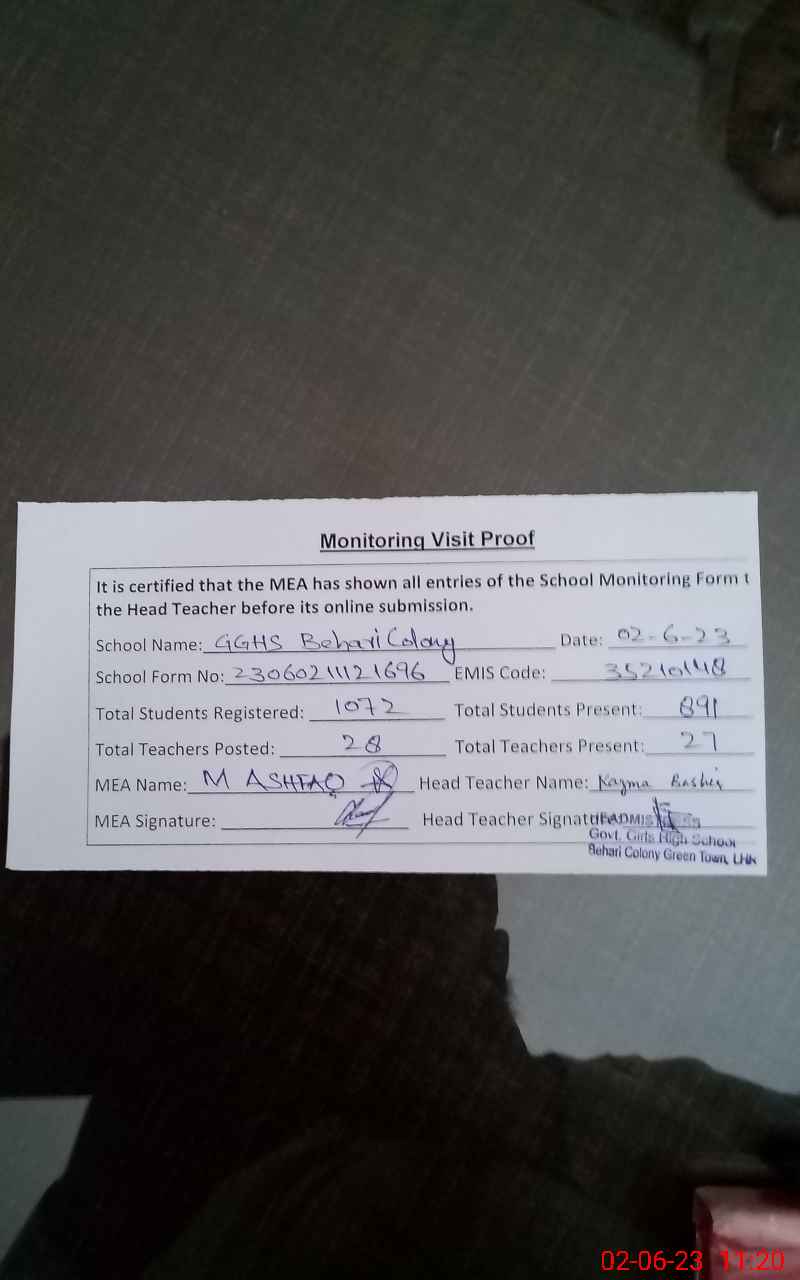 Monitoring Visit Proof
It is certified that the MEA has shown all entries of the School Monitoring Form t
the Head Teacher before its online submission.
School Name: GGHS Behari Colony Date: 02-6-23
School Form No: 23060211121696 EMIS Code: 35210148
Total Students Registered: 1072 Total Students Present: 891
Total Teachers Posted: 28 Total Teachers Present: 27
MEA Name: M ASHFAQ Head Teacher Name: Nazma Bashir
MEA Signature: Head Teacher Signature
Govt. Girls High School
Behari Colony Green Town, LHR
02-06-23 11:20